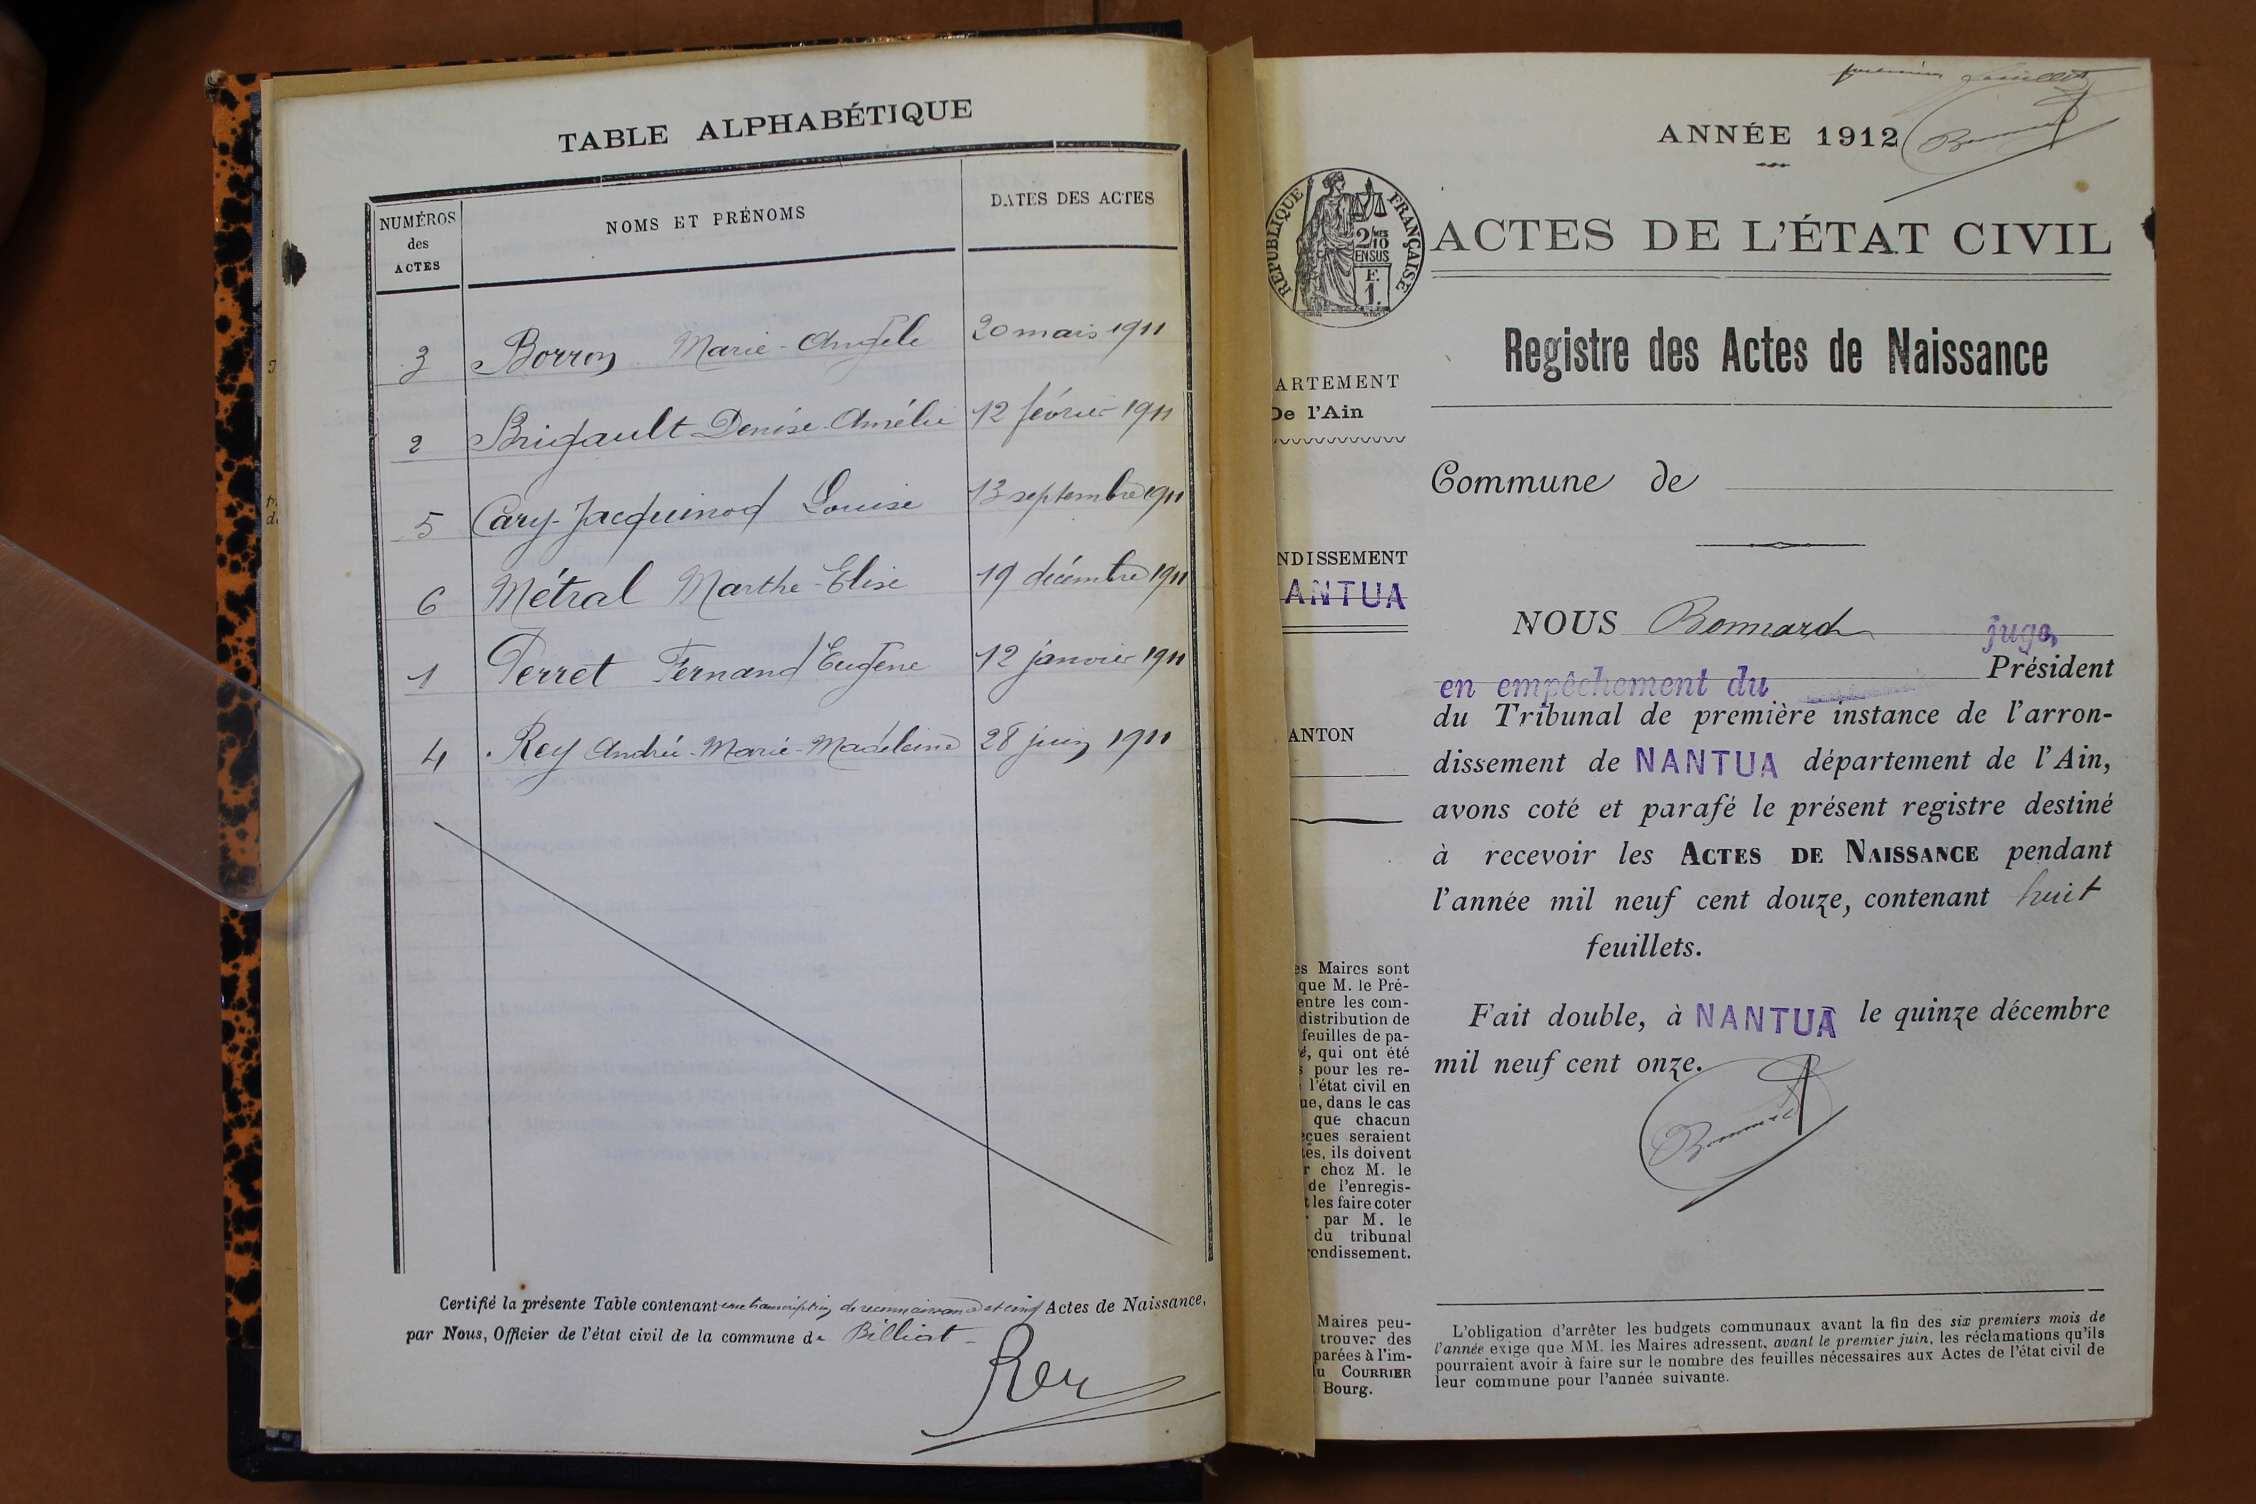 TABLE ALPHABÉTIQUE
NUMÉROS des ACTES
NOMS ET PRÉNOMS
DATES DES ACTES
3 Borron Marie-Angèle 20 mars 1911
2 Brigault Denise-Amélie 12 février 1911
5 Cary-Jacquinod Louise 13 septembre 1911
6 Métral Marthe-Elise 19 décembre 1911
1 Perret Fernand Eugène 12 janvier 1911
4 Rey Andrée-Marie-Madeleine 28 juin 1911
Certifié la présente Table contenant une transcription de reconnaissance et cinq Actes de Naissance,
par Nous, Officier de l'état civil de la commune de Billiat
Rey
premier feuillet
ANNÉE 1912
Bonnard
RÉPUBLIQUE FRANÇAISE
2/10 MES
EN SUS
F.
1.
ACTES DE L'ÉTAT CIVIL
Registre des Actes de Naissance
ARTEMENT
De l'Ain
Commune de
NDISSEMENT
ANTUA
ANTON
NOUS Bonnard juge,
en empêchement du Président
du Tribunal de première instance de l'arron-
dissement de NANTUA département de l'Ain,
avons coté et parafé le présent registre destiné
à recevoir les ACTES DE NAISSANCE pendant
l'année mil neuf cent douze, contenant huit
feuillets.
Fait double, à NANTUA le quinze décembre
mil neuf cent onze.
Bonnard
es Maires sont
que M. le Pré-
entre les com-
distribution de
feuilles de pa-
é, qui ont été
s pour les re-
l'état civil en
ue, dans le cas
que chacun
eçues seraient
tes, ils doivent
r chez M. le
de l'enregis-
t les faire coter
par M. le
du tribunal
rondissement.
Maires peu-
trouver des
parées à l'im-
u COURRIER
Bourg.
L'obligation d'arrêter les budgets communaux avant la fin des six premiers mois de
l'année exige que MM. les Maires adressent, avant le premier juin, les réclamations qu'ils
pourraient avoir à faire sur le nombre des feuilles nécessaires aux Actes de l'état civil de
leur commune pour l'année suivante.